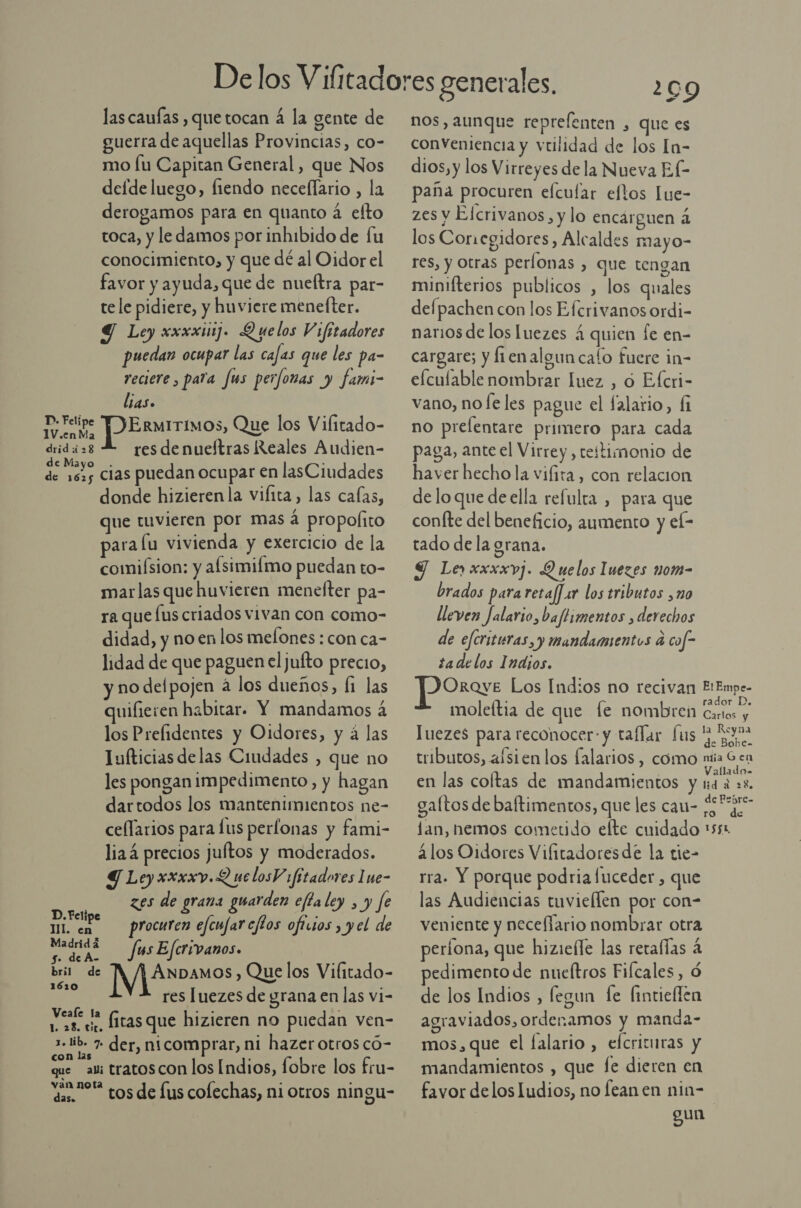 De los Viſitadores generales. 299
las cauſas, que tocan á la gente de
guerra de aquellas Provincias, co-
mo ſu Capitan General, que Nos
deſde luego, ſiendo neceſſario, la
derogamos para en quanto á eſto
toca, y le damos por inhibido de ſu
conocimiento, y que dé al Oidor el
favor y ayuda, que de nueſtra par-
te le pidiere, y huviere meneſter.
¶ Ley xxxxiiij. Que los Viſitadores
puedan ocupar las caſas que les pa-
reciere, para ſus perſonas y fami-
lias.
D. Felipe
IV. en Ma
drid á 28
de Mayo
de 1625
PErmitimos, Que los Viſitado-
res de nueſtras Reales Audien-
cias puedan ocupar en las Ciudades
donde hizieren la viſita, las caſas,
que tuvieren por mas á propoſito
para ſu vivienda y exercicio de la
comiſsion: y aſsimiſmo puedan to-
mar las que huvieren meneſter pa-
ra que ſus criados vivan con como-
didad, y no en los meſones: con ca-
lidad de que paguen el juſto precio,
y no deſpojen á los dueños, ſi las
quiſieren habitar. Y mandamos á
los Preſidentes y Oidores, y á las
Iuſticias de las Ciudades, que no
les pongan impedimento, y hagan
dar todos los mantenimientos ne-
ceſſarios para ſus perſonas y fami-
lia á precios juſtos y moderados.
¶ Ley xxxxv. Que los Viſitadores Iue-
zes de grana guarden eſta ley, y ſe
procuren eſcuſar eſtos oficios, y el de
ſus Eſcrivanos.
D. Felipe
III. en
Madrid á
5. de A-
bril de
1620
Veaſe la
l. 28. tit.
2. lib. 7.
con las
que alli
van nota
das.
MAndamos, Que los Viſitado-
res Iuezes de grana en las vi-
ſitas que hizieren no puedan ven-
der, ni comprar, ni hazer otros cō-
tratos con los Indios, ſobre los fru-
tos de ſus coſechas, ni otros ningu-
nos, aunque repreſenten, que es
conveniencia y vtilidad de los In-
dios, y los Virreyes de la Nueva Eſ-
paña procuren eſcuſar eſtos Iue-
zes y Eſcrivanos, y lo encarguen á
los Corregidores, Alcaldes mayo-
res, y otras perſonas, que tengan
miniſterios publicos, los quales
deſpachen con los Eſcrivanos ordi-
narios de los Iuezes á quien ſe en-
cargare; y ſi en algun caſo fuere in-
eſcuſable nombrar Iuez, ó Eſcri-
vano, no ſe les pague el ſalario, ſi
no preſentare primero para cada
paga, ante el Virrey, teſtimonio de
haver hecho la viſita, con relacion
de lo que de ella reſulta, para que
conſte del beneficio, aumento y eſ-
tado de la grana.
¶ Ley xxxxvj. Que los Iuezes nom-
brados para retaſſar los tributos, no
lleven ſalario, baſtimentos, derechos
de eſcrituras, y mandamientos á coſ-
ta de los Indios.
El Empe-
rador D.
Carlos y
la Reyna
de Bohe-
mia G en
Vallado-
lid á 28.
de Febre-
ro de
1551
POrqve Los Indios no recivan
moleſtia de que ſe nombren
Iuezes para reconocer y taſſar ſus
tributos, aſsi en los ſalarios, como
en las coſtas de mandamientos y
gaſtos de baſtimentos, que les cau-
ſan, hemos cometido eſte cuidado
á los Oidores Viſitadores de la tie-
rra. Y porque podria ſuceder, que
las Audiencias tuvieſſen por con-
veniente y neceſſario nombrar otra
perſona, que hizieſſe las retaſſas á
pedimento de nueſtros Fiſcales, ó
de los Indios, ſegun ſe ſintieſſen
agraviados, ordenamos y manda-
mos, que el ſalario, eſcrituras y
mandamientos, que ſe dieren en
favor de los Iudios, no ſean en nin-
gun